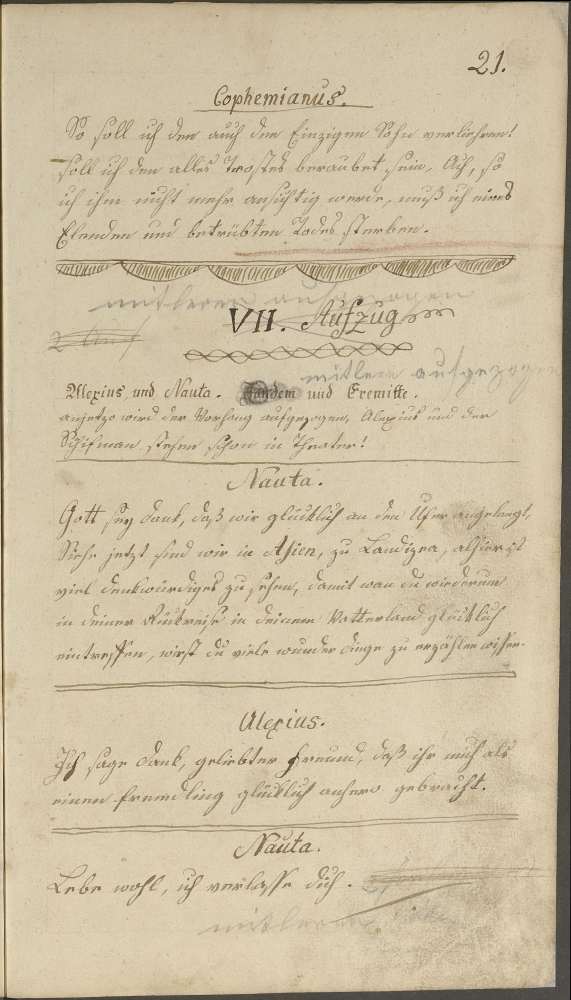 21.
Cophemianus.
So soll ich den auch den Einzigen Sohn verliehren!
soll ich den alles Trostes beraubet sein, Ach, so
ich ihm nicht mehr ansichtig werde, muß ich eines
Elenden und betrübten Todes sterben.
mitleren aufgezogen
VII. Aufzug
mitlere aufgezogen
Alexius und Nauta. Tandem und Eremitte.
anjetzo wird der Vorhang aufgezogen, Alexius und der
Schifman stehen schon in Theater!
Nauta.
Gott sey dank, daß wir glücklich an den Ufer angelangt,
Siehe jetzt sind wir in Asien, zu Landizea, alhier ist
viel denkwürdiges zu sehen, damit wan du wiederum
in deiner Rückreise in deinem Vatterland glücklich
eintreffen, wirst du viele wunder dinge zu erzählen wissen.
Alexius.
Ich sage dank, geliebter Freund, daß ihr mich als
einen fremdling glücklich anhero gebracht.
Nauta.
Lebe wohl, ich verlasse dich.
mitleren